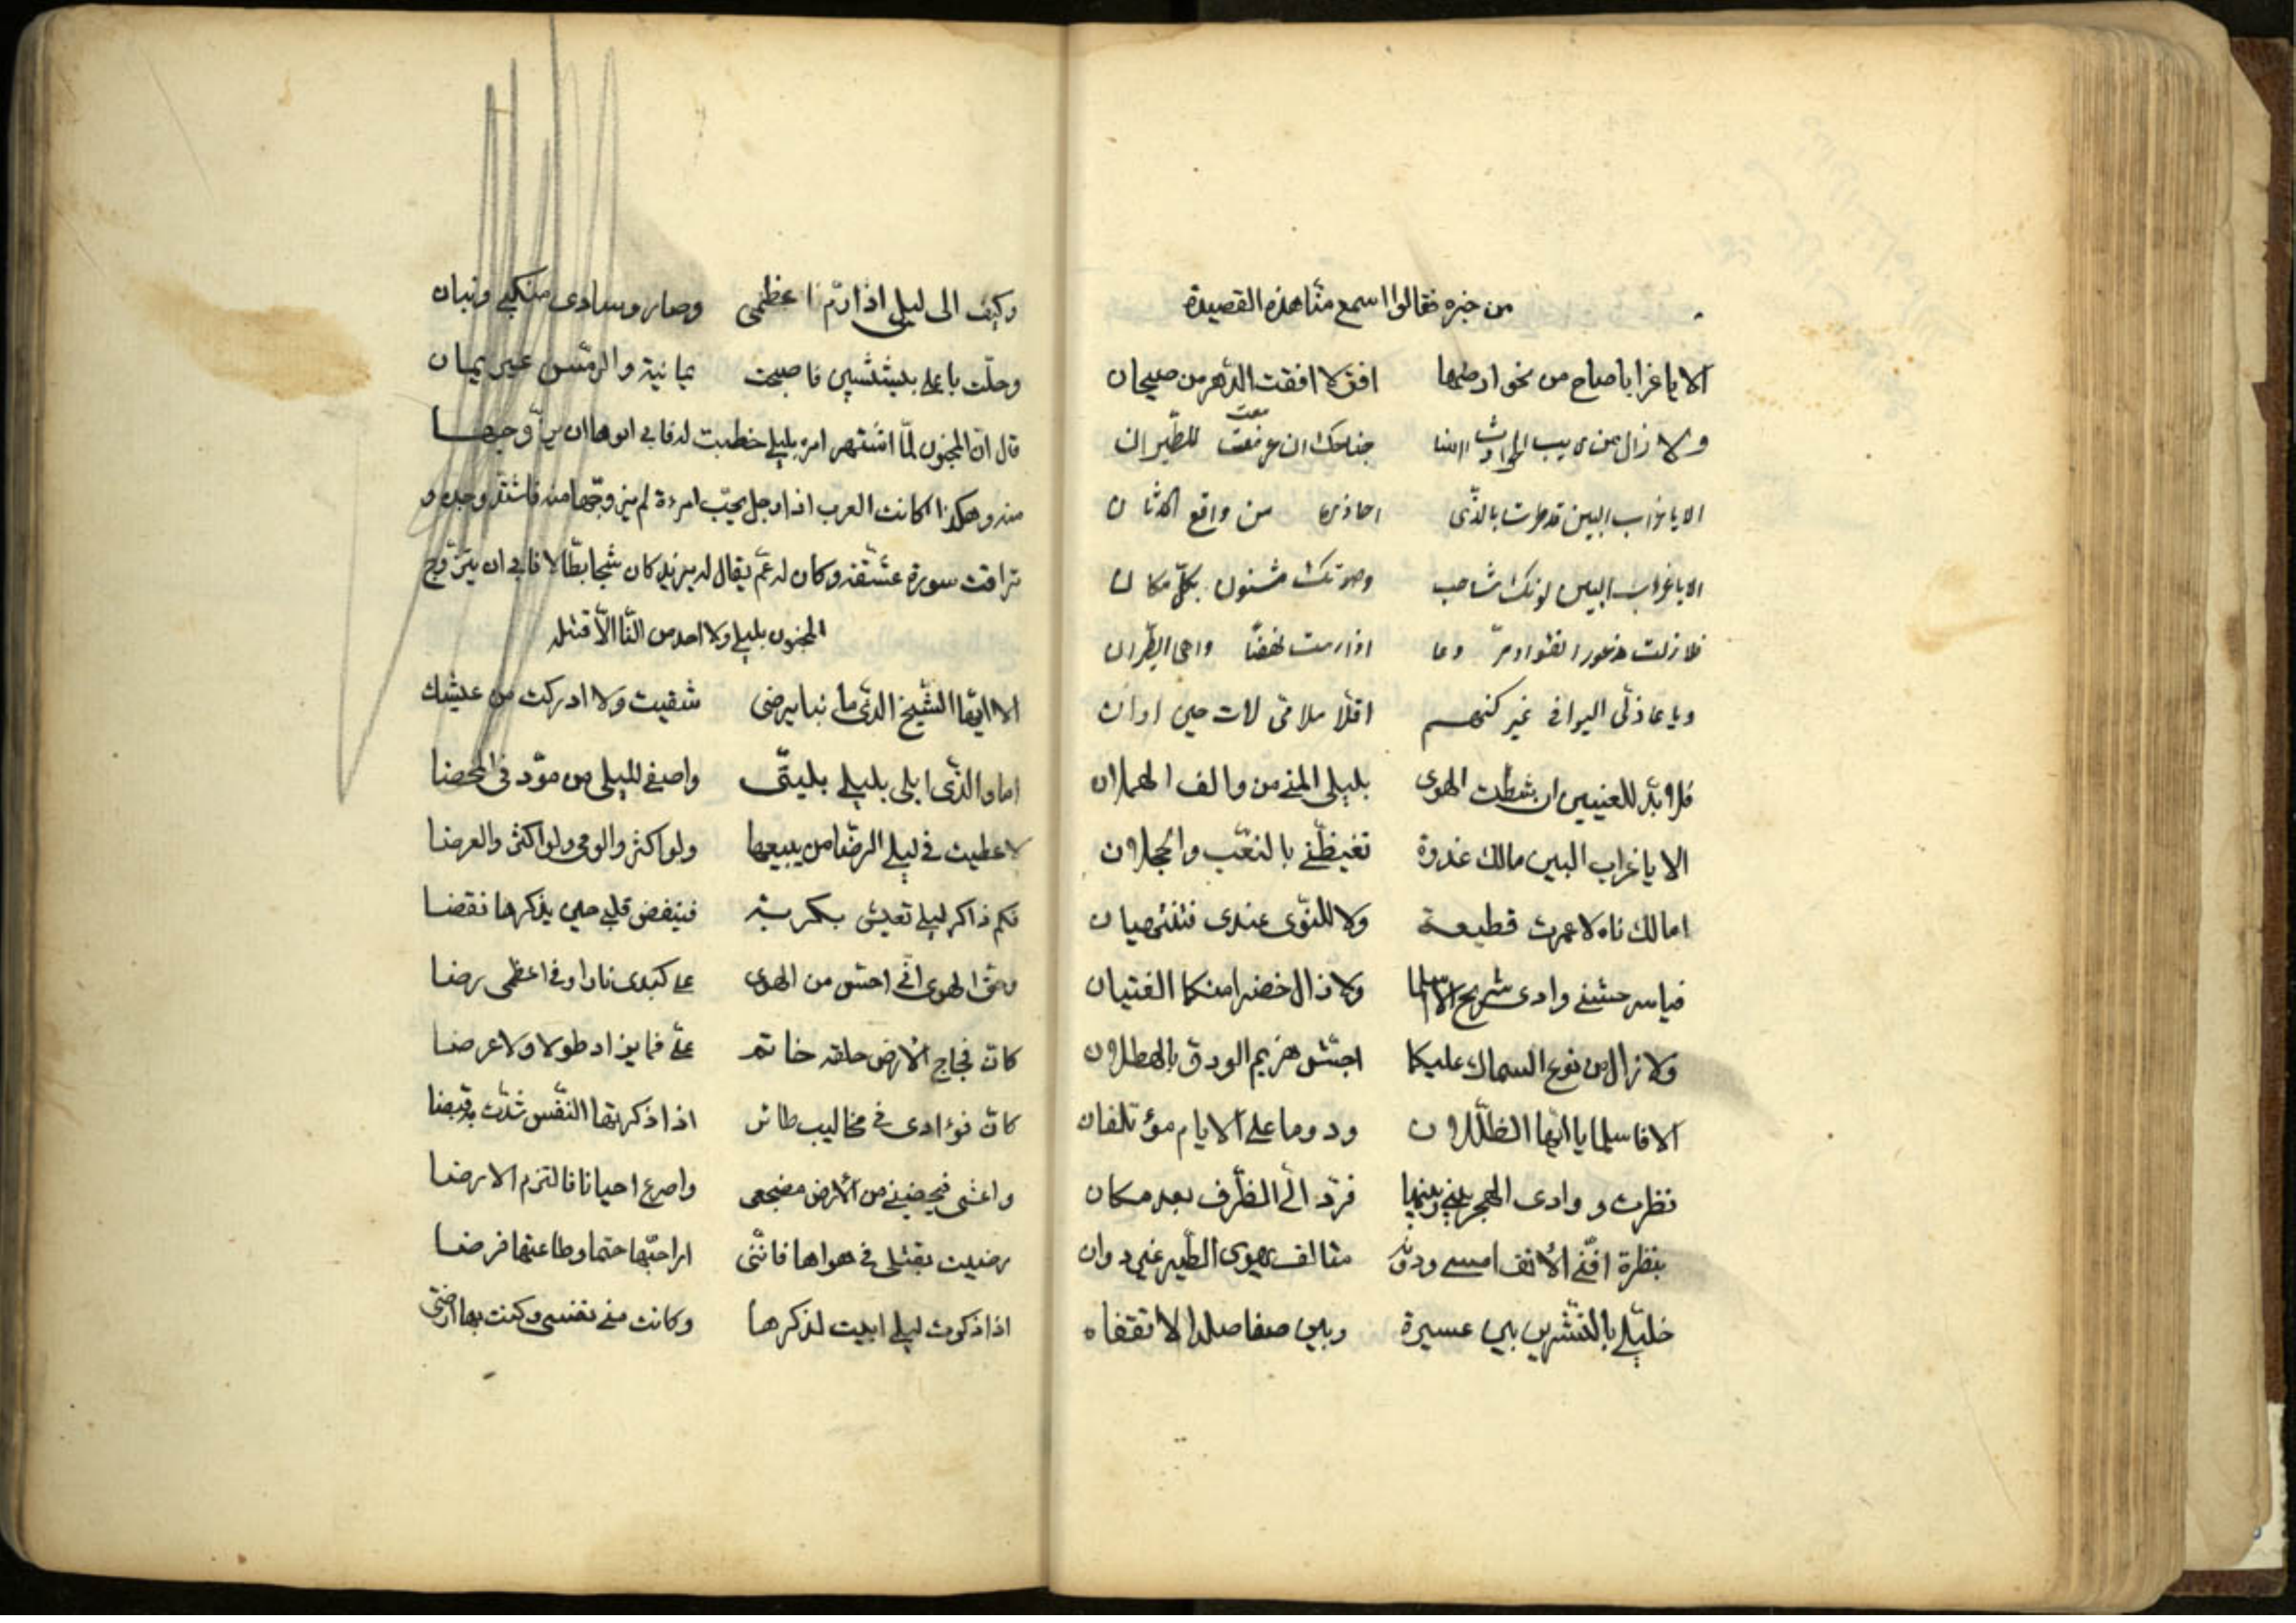 من خبره فقالوا اسمع منّا هذه القصيدة
الا يا غرابا صاح من نحو ارضها افق لا افقت الدّهر من صيحان
ولا زال من ريب الحوادث جناحك ان عزمت للطّيران
الا يا غراب البين قد طرت بالذّى احاذره من واقع الحدثان
الا يا غراب البين لونك شاحب وصوتك مشنون بكلّ مكان
فلا زلت مذعور الفؤاد اذا رمت نهضًا واهى الطّيران
ويا عاذلّى اليوم فى غير كنهه اقلّا ملامى لات حين اوان
فلا بدّ للعينين ان شطت الهوى بليلى المنى من والف الهملان
الا يا غراب البين مالك غدوة تغيظنى بالنعّب والحجلان
اما لك ناه لا عمرت قطيعة ولا للنّوى عندى فتنتهيان
فيا سرحتنى وادى سريح الا اسلما ولا زال خضرا منكما الفتيان
ولا زال من نوء السماك عليكما اجشّ هزيم الودق بالهطلان
الا فاسلما يا ايّها الطّللان ودوما على الايام مؤتلفان
نظرت و وادى الحجر بينى وبينها فردّ الىّ الطّرف بعد مكان
بنظرة اقنى الانف امسى ودونه متالف يهوى الطّير غير دوان
خليلىّ بالنّشرين بين عسيرة وبين صفا صلد الا تقفان
وكيف الى ليلى اذا رمّ اعظمى وصار وسادى منكبى وبنان
وحلّت باعلى بيشتين فاصبحت يمانية والرمّس غير يمان
قال انّ المجنون لمّا اشتهر امره بليلى خطبت له فابى ابوها ان يزوّجها
منه وهكذا كانت العرب اذا رجل يحبّ امرءة لم يزوجّها منه فاشتدّ وجده و
ترافت سورة عشقه وكان له عمّ يقال له يزيد كان شجا بطّالا فابى ان يتزوّج
المجنون بليلى ولا احد من النّا الّا قتله
الا ايّها الشّيخ الذّى ما بنا يرضى شقيت ولا ادركت من عيشك
اما والذّى ابلى بليلى بليتّى واصفى لليلى من مودّتى المحضا
لاعطيت فى ليلى الرضّا من يبيعها ولو اكثر والومى ولو اكثر والعرضا
فكم ذاكر ليلى تعيش بكربة فينفض قلبى حين يذكرها نقضا
وحقّ الهوى انّى احسّ من الهوى على كبدى نارا وفى اعظمى رضا
كانّ فجاج الارض حلقة خاتم علىّ فما يزداد طولا ولا عرضا
كانّ فؤادى فى مخاليب طائر اذا ذكرتها النّفس شدّت به قبضا
واغشى فيحضينى من الارض مضجعى واصرع احيانا فالتزم الارضا
رضيت بقتلى فى هواها فانّنى ارا حبّها حتما وطاعتها فرضا
اذا ذكرت ليلى ابيت لذكرها وكانت منى نفسى وكنت بها ارضى